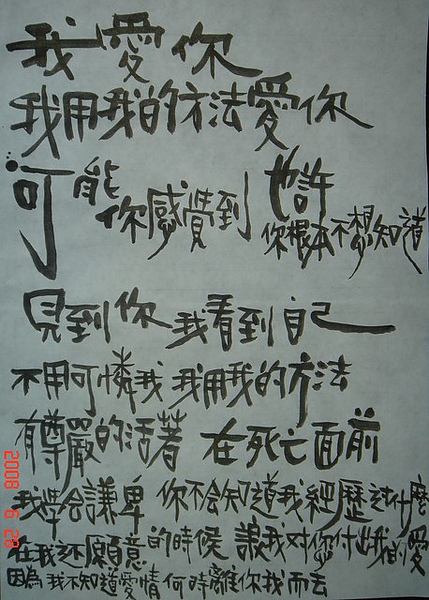 我愛你
我用我的方法愛你
可能你感覺到 也許你根本不想知道
見到你 我看到自己
不用可憐我 我用我的方法
有尊嚴的活著 在死亡面前
我學會謙卑 你不会知道我經歷這什麼
在我还願意的時候 讓我對你付出我的愛
因為我不知道愛情何時離你我而去
2008 6 28